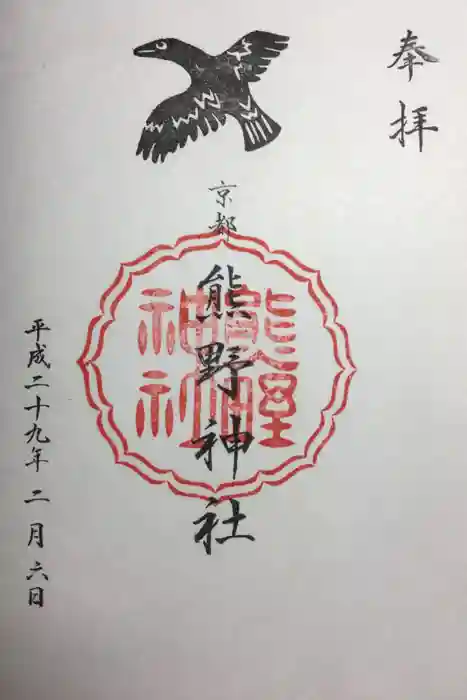 奉拝
京都
熊野神社
熊野
神社
平成二十九年 二月六日